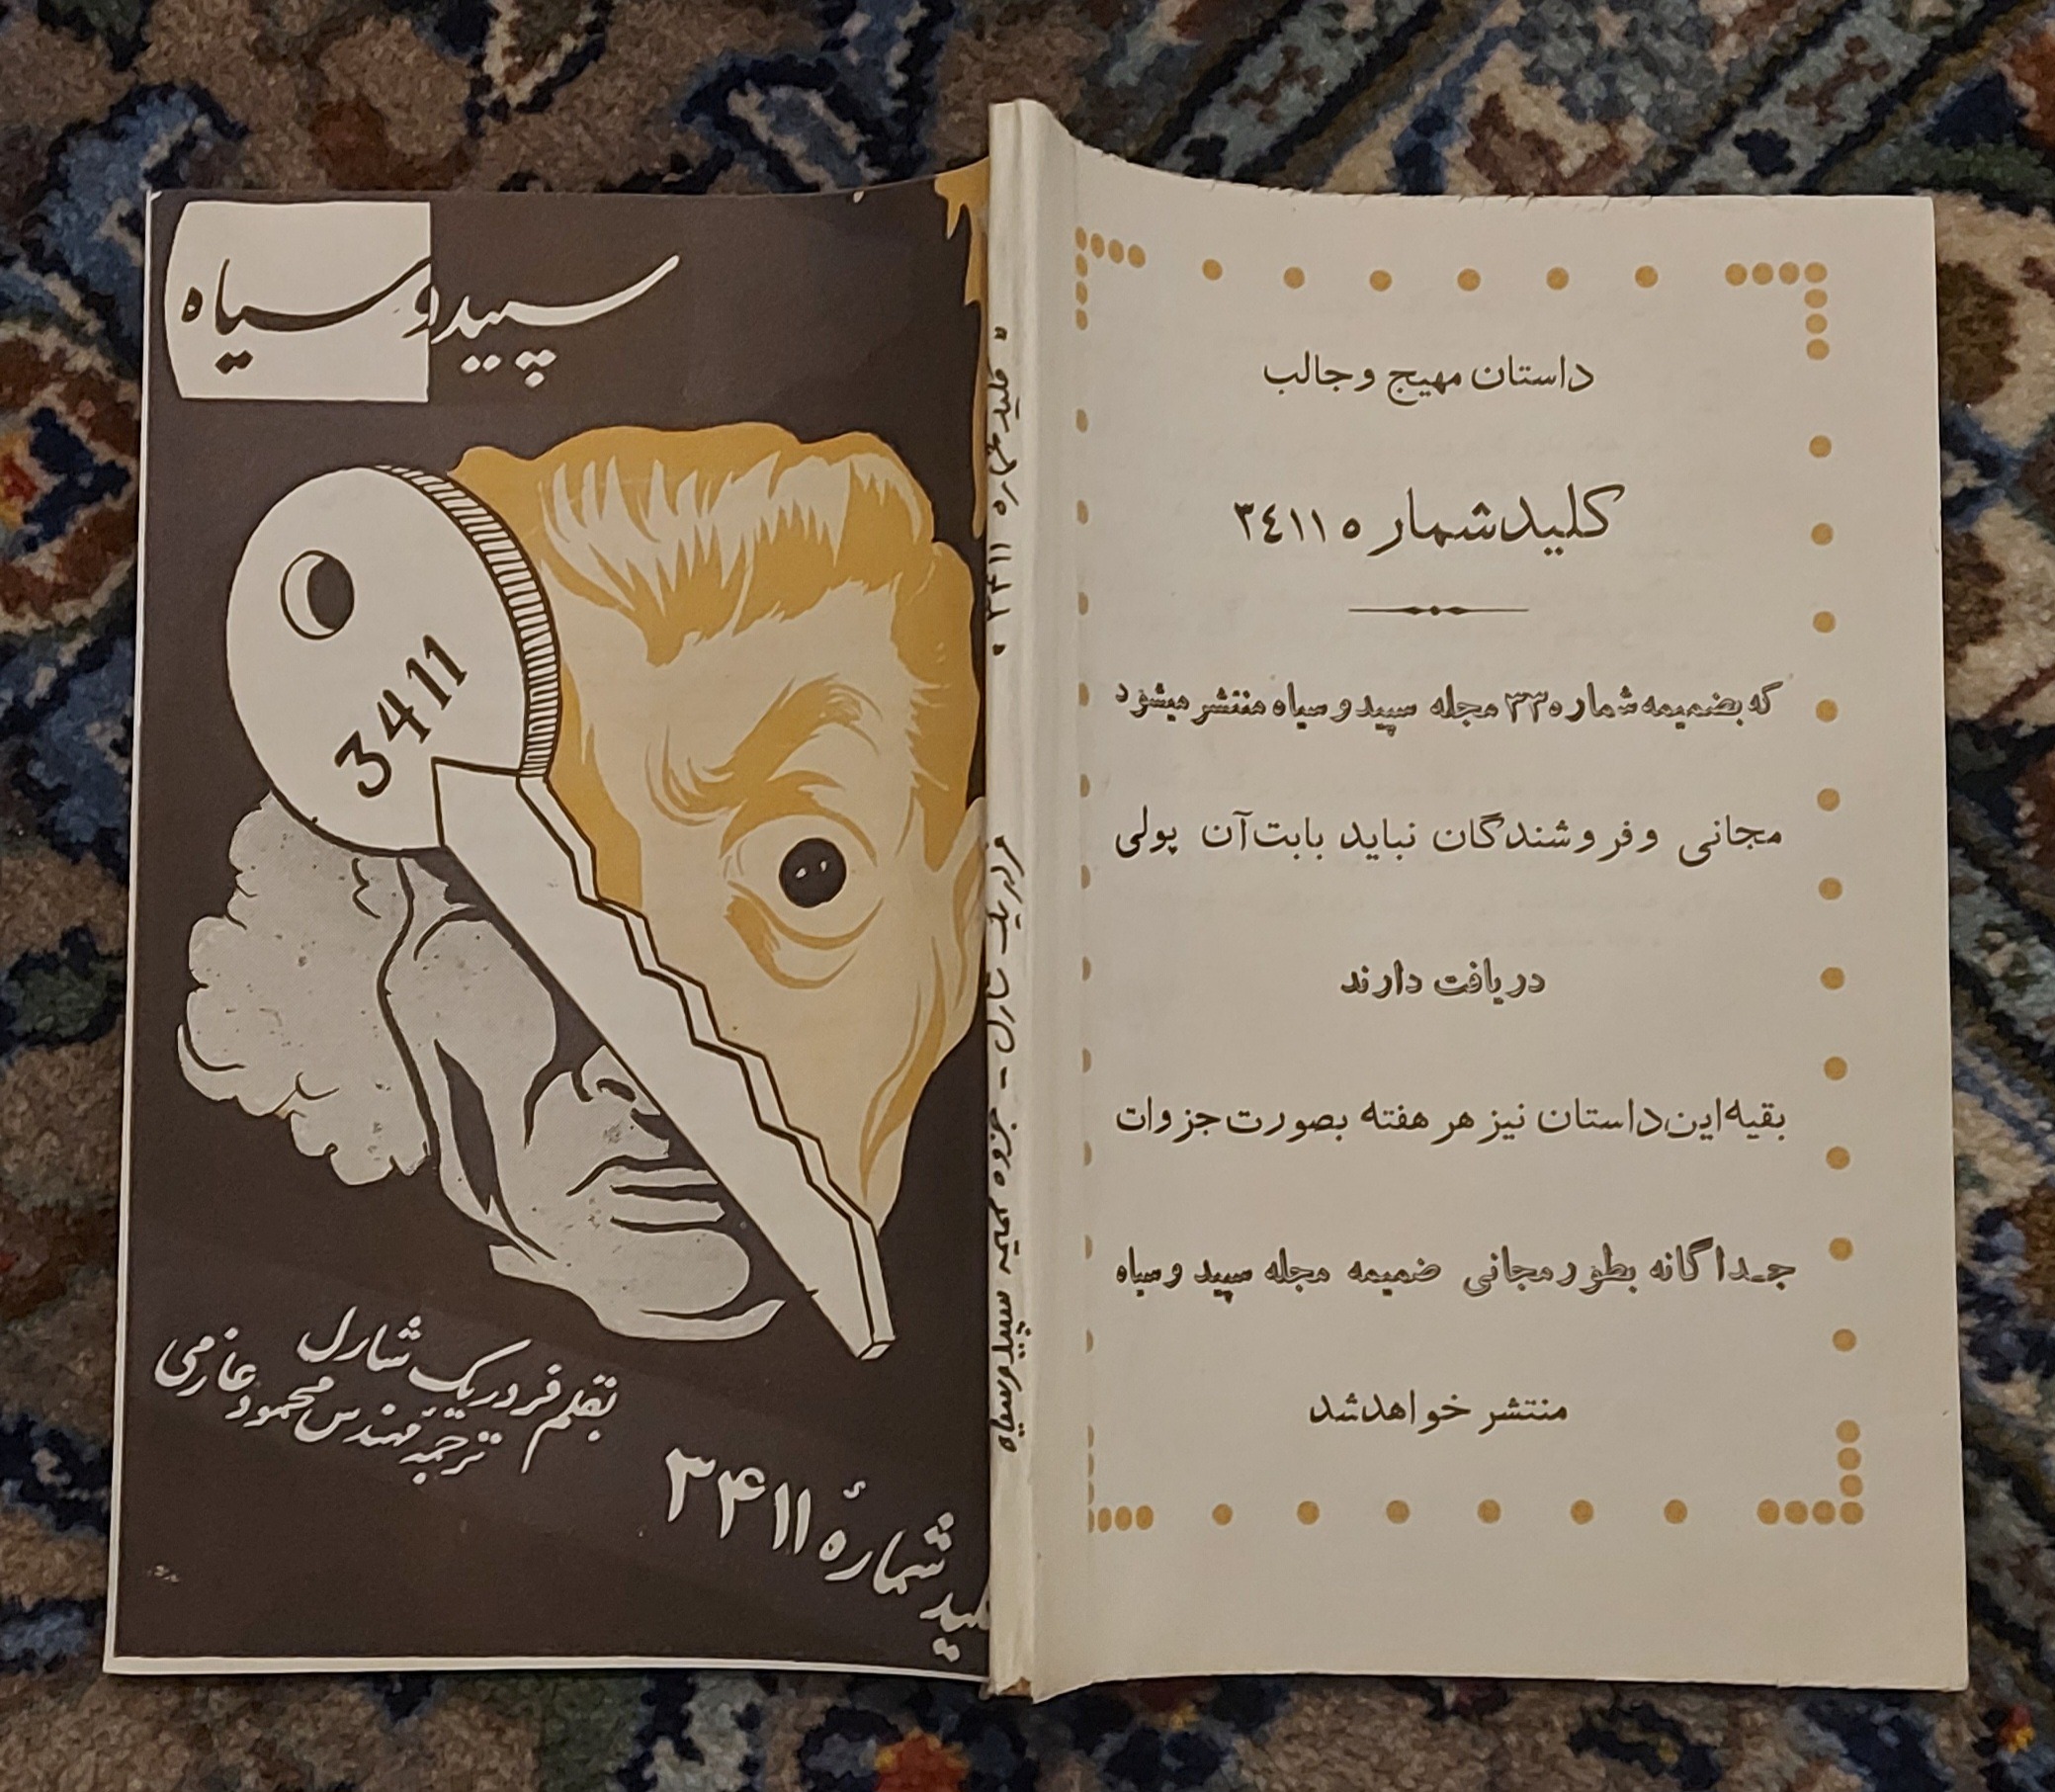 سپید و سیاه
3411
بقلم فردریک شارل
ترجمهٔ مهندس محمود عازمی
کلید شمارهٔ ۳۴۱۱
" کلید شماره ۳۴۱۱ "
فردریک شارل - جزوه ضمیمه سپید و سیاه
داستان مهیج و جالب
کلید شماره ۳٤۱۱
که بضمیمه شماره ۳۳ مجله سپید و سیاه منتشر میشود
مجانی و فروشندگان نباید بابت آن پولی
دریافت دارند
بقیه این داستان نیز هر هفته بصورت جزوات
جداگانه بطور مجانی ضمیمه مجله سپید و سیاه
منتشر خواهد شد